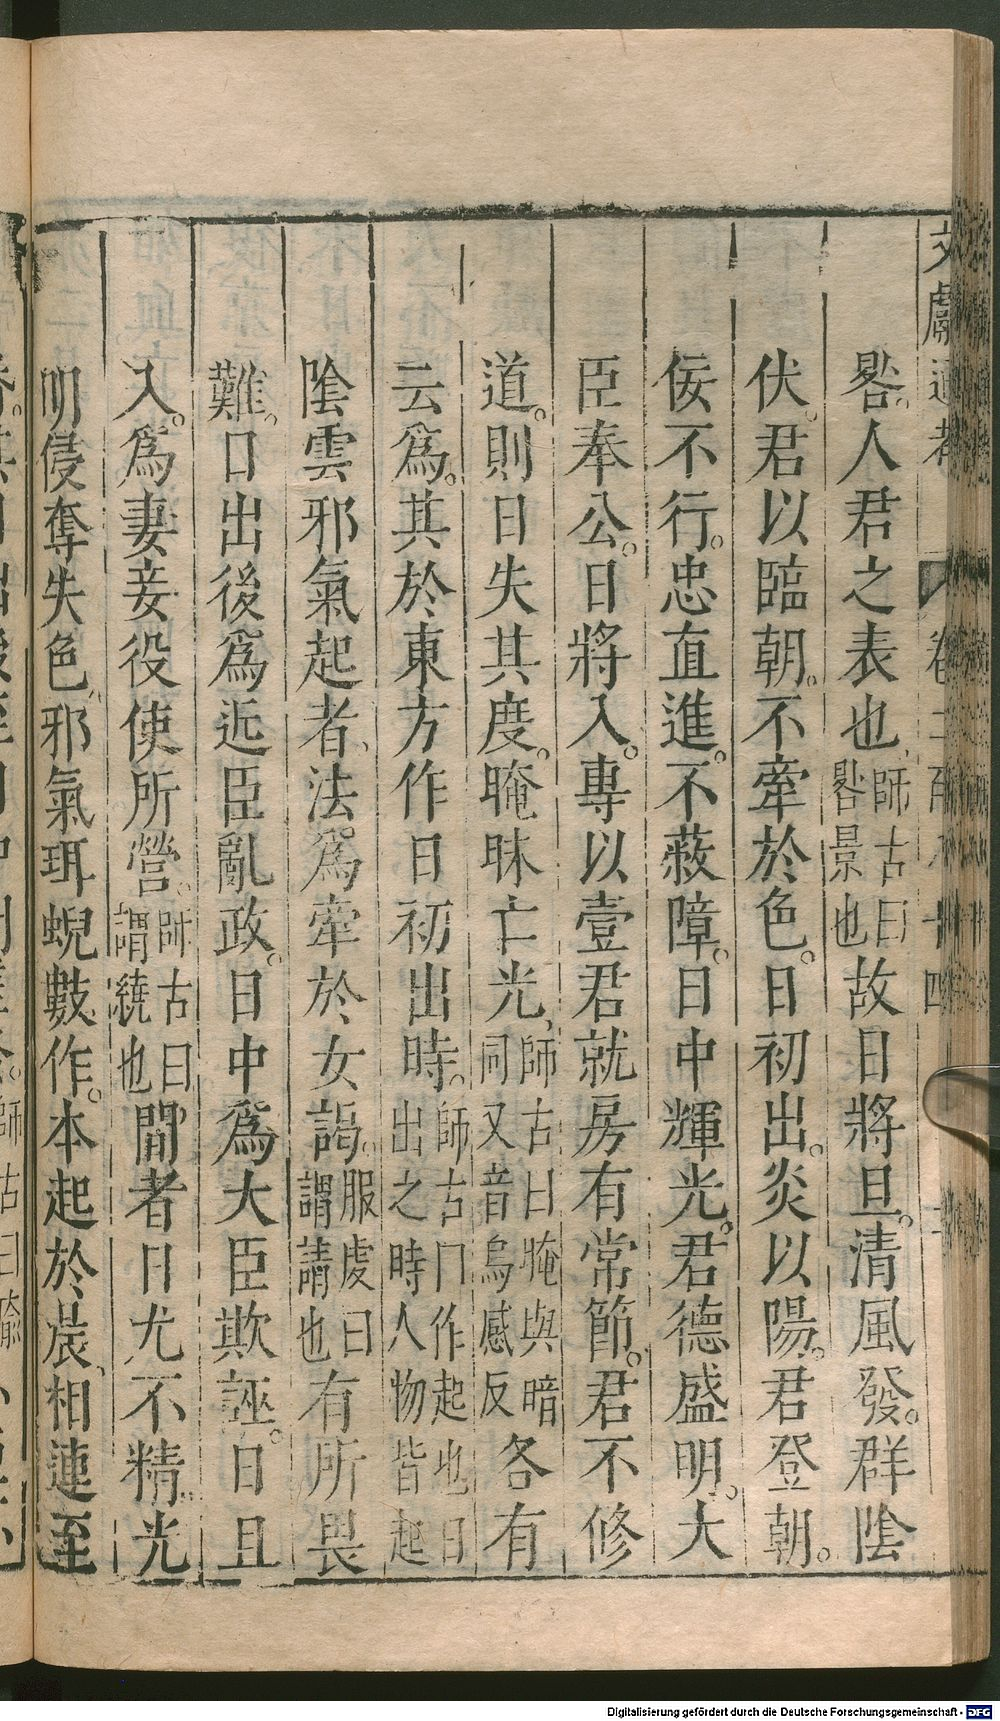 文獻通考 卷二百八十四
晷人君之表也師古曰晷景也故日將旦清風發群陰
伏君以臨朝不牽於色日初出炎以陽君登朝
佞不行忠直進不蔽障日中輝光君德盛明大
臣奉公日將入專以壹君就房有常節君不修
道則日失其度晻昧亡光師古曰晻與暗同又音烏感反各有
云爲其於東方作日初出時師古曰作起也日出之時人物皆起
陰雲邪氣起者法爲牽於女謁服虔曰謂請也有所畏
難日出後爲近臣亂政日中爲大臣欺誣日且
入爲妻妾役使所營師古曰謂繞也間者日尤不精光
明侵奪失色邪氣珥蜺數作本起於晨相連至
Digitalisierung gefördert durch die Deutsche Forschungsgemeinschaft - DFG